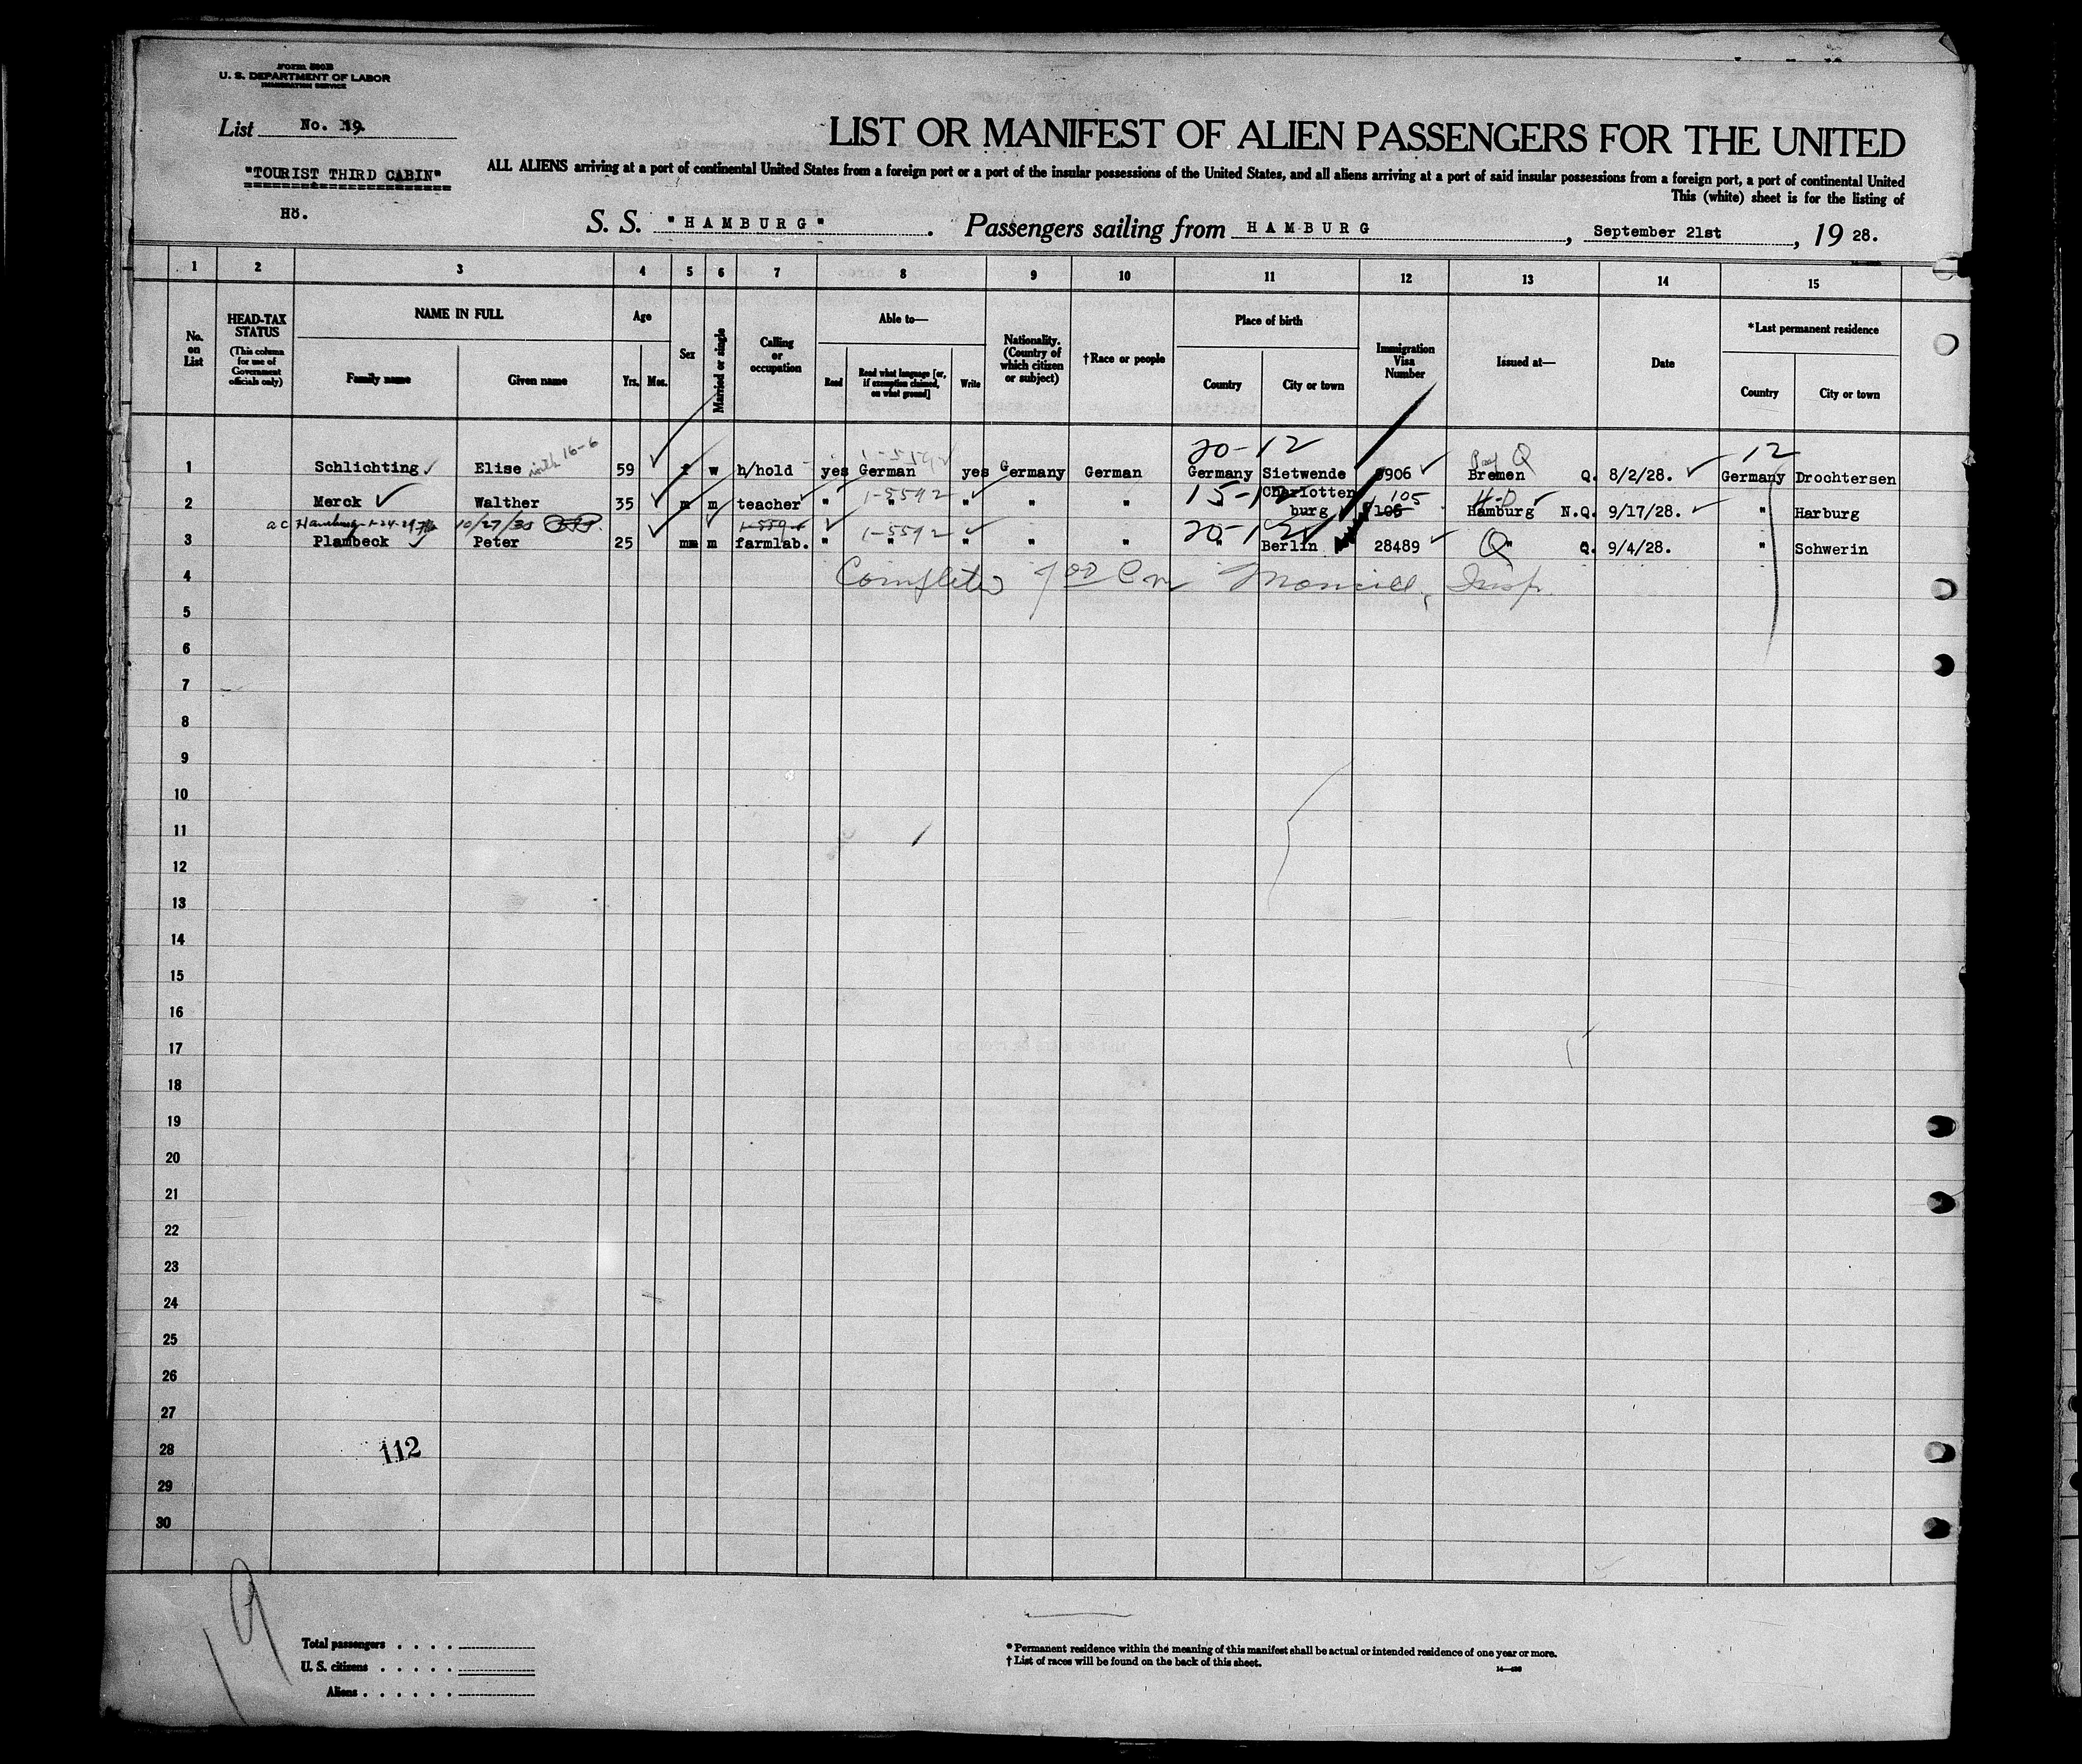 Form 500B
U. S. DEPARTMENT OF LABOR
IMMIGRATION SERVICE
List No. 19.
LIST OR MANIFEST OF ALIEN PASSENGERS FOR THE UNITED
"TOURIST THIRD CABIN"
ALL ALIENS arriving at a port of continental United States from a foreign port or a port of the insular possessions of the United States, and all aliens arriving at a port of said insular possessions from a foreign port, a port of continental United
This (white) sheet is for the listing of
Hö.
S. S. "HAMBURG". Passengers sailing from HAMBURG, September 21st, 19 28.
1 2 3 4 5 6 7 8 9 10 11 12 13 14 15
No. on List
HEAD-TAX STATUS
(This column for use of Government officials only)
NAME IN FULL
Family name Given name
Age
Yrs. Mos.
Sex
Married or single
Calling or occupation
Able to—
Read
Read what language [or, if exemption claimed, on what ground]
Write
Nationality. (Country of which citizen or subject)
†Race or people
Place of birth
Country City or town
Immigration Visa Number
Issued at—
Date
*Last permanent residence
Country City or town
20-12 Q 12
with 16-6
1 Schlichting Elise 59 f w h/hold yes German yes Germany German Germany Sietwende 6906 Bremen Q. 8/2/28. Germany Drochtersen
1-5592 15-12 105 H.D
2 Merck Walther 35 m m teacher " " " " " Charlottenburg 105 Hamburg N.Q. 9/17/28. " Harburg
10/27/30 1-5592 20-12
3 Plambeck Peter 25 m m farmlab. " " " " " " Berlin 28489 " Q. 9/4/28. " Schwerin
4 Complete Insp.
5
6
7
8
9
10
11
12
13
14
15
16
17
18
19
20
21
22
23
24
25
26
27
28
112
29
30
19
Total passengers . . . .
U. S. citizens . . . . .
Aliens . . . . . .
* Permanent residence within the meaning of this manifest shall be actual or intended residence of one year or more.
† List of races will be found on the back of this sheet.